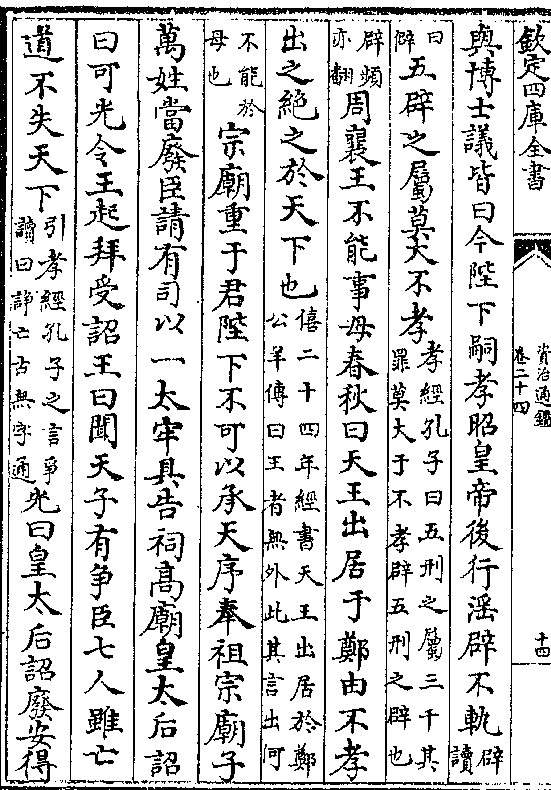 欽定四庫全書
資治通鑑
卷二十四
十四
與博士議皆曰今陛下嗣孝昭皇帝後行滛辟不軌辟讀
曰僻五辟之屬莫大不孝孝經孔子曰五刑之屬三千其罪莫大于不孝辟五刑之辟也
辟頻亦翻周襄王不能事母春秋曰天王出居于鄭由不孝
出之絶之於天下也僖二十四年經書天王出居於鄭公羊傳曰王者無外此其言出何
不能於母也宗廟重于君陛下不可以承天序奉祖宗廟子
萬姓當廢臣請有司以一太牢具告祠高廟皇太后詔
曰可光令王起拜受詔王曰聞天子有爭臣七人雖亡
道不失天下引孝經孔子之言爭讀曰諍亡古無字通光曰皇太后詔廢安得